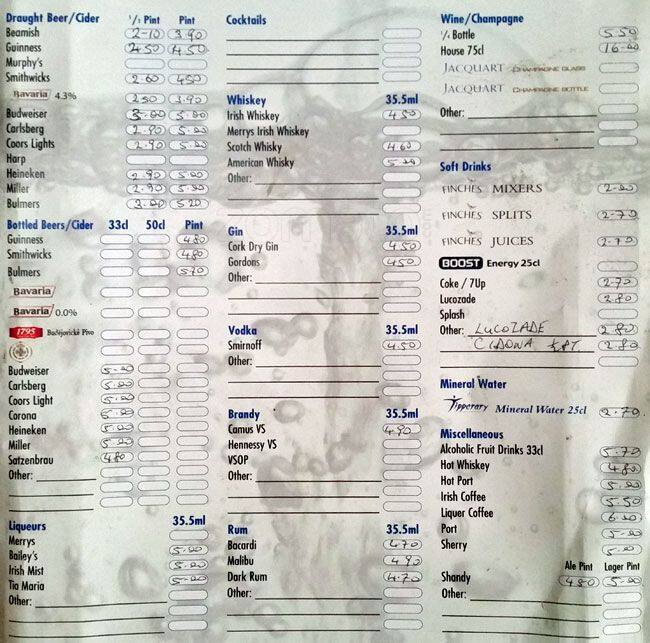 Draught Beer/Cider ½ Pint Pint
Beamish 2-10 3.90
Guinness 2.50 4.50
Murphy's
Smithwicks 2.60 4.50
Bavaria 4.3% 2.50 3.90
Budweiser 3.00 5.00
Carlsberg 2.90 5.00
Coors Lights 2.90 5.00
Harp
Heineken 2.90 5.00
Miller 2.90 5.00
Bulmers 3.00 5.20
Bottled Beers/Cider 33cl 50cl Pint
Guinness 4.80
Smithwicks 4.80
Bulmers 5.70
Bavaria
Bavaria 0.0%
1795 Budějovické Pivo
Budweiser 5.00
Carlsberg 5.00
Coors Light 5.00
Corona 5.00
Heineken 5.00
Miller 5.00
Satzenbrau 4.80
Other:
Liqueurs 35.5ml
Merrys
Bailey's 5.00
Irish Mist 5.00
Tia Maria 5.00
Other:
Cocktails
Whiskey 35.5ml
Irish Whiskey 4.50
Merrys Irish Whiskey
Scotch Whisky 4.60
American Whisky 5.00
Other:
Gin 35.5ml
Cork Dry Gin 4.50
Gordons 4.50
Other:
Vodka 35.5ml
Smirnoff 4.50
Other:
Brandy 35.5ml
Camus VS 4.90
Hennessy VS
VSOP
Other:
Rum 35.5ml
Bacardi 4.70
Malibu 4.90
Dark Rum 4.70
Other:
Wine/Champagne
¼ Bottle 5.50
House 75cl 16.00
JACQUART CHAMPAGNE GLASS
JACQUART CHAMPAGNE BOTTLE
Other:
Soft Drinks
FINCHES MIXERS 2-20
FINCHES SPLITS 2-70
FINCHES JUICES 2.70
BOOST Energy 25cl
Coke / 7Up 2.70
Lucozade 2.80
Splash
Other: LUCOZADE 2.80
CIDONA ½ PT. 2.80
Mineral Water
Tipperary Mineral Water 25cl 2.70
Miscellaneous
Alcoholic Fruit Drinks 33cl 5.70
Hot Whiskey 4.80
Hot Port 5.00
Irish Coffee 5.50
Liquer Coffee 6.00
Port 5.00
Sherry 5.00
Ale Pint Lager Pint
Shandy 4.80 5.00
Other: